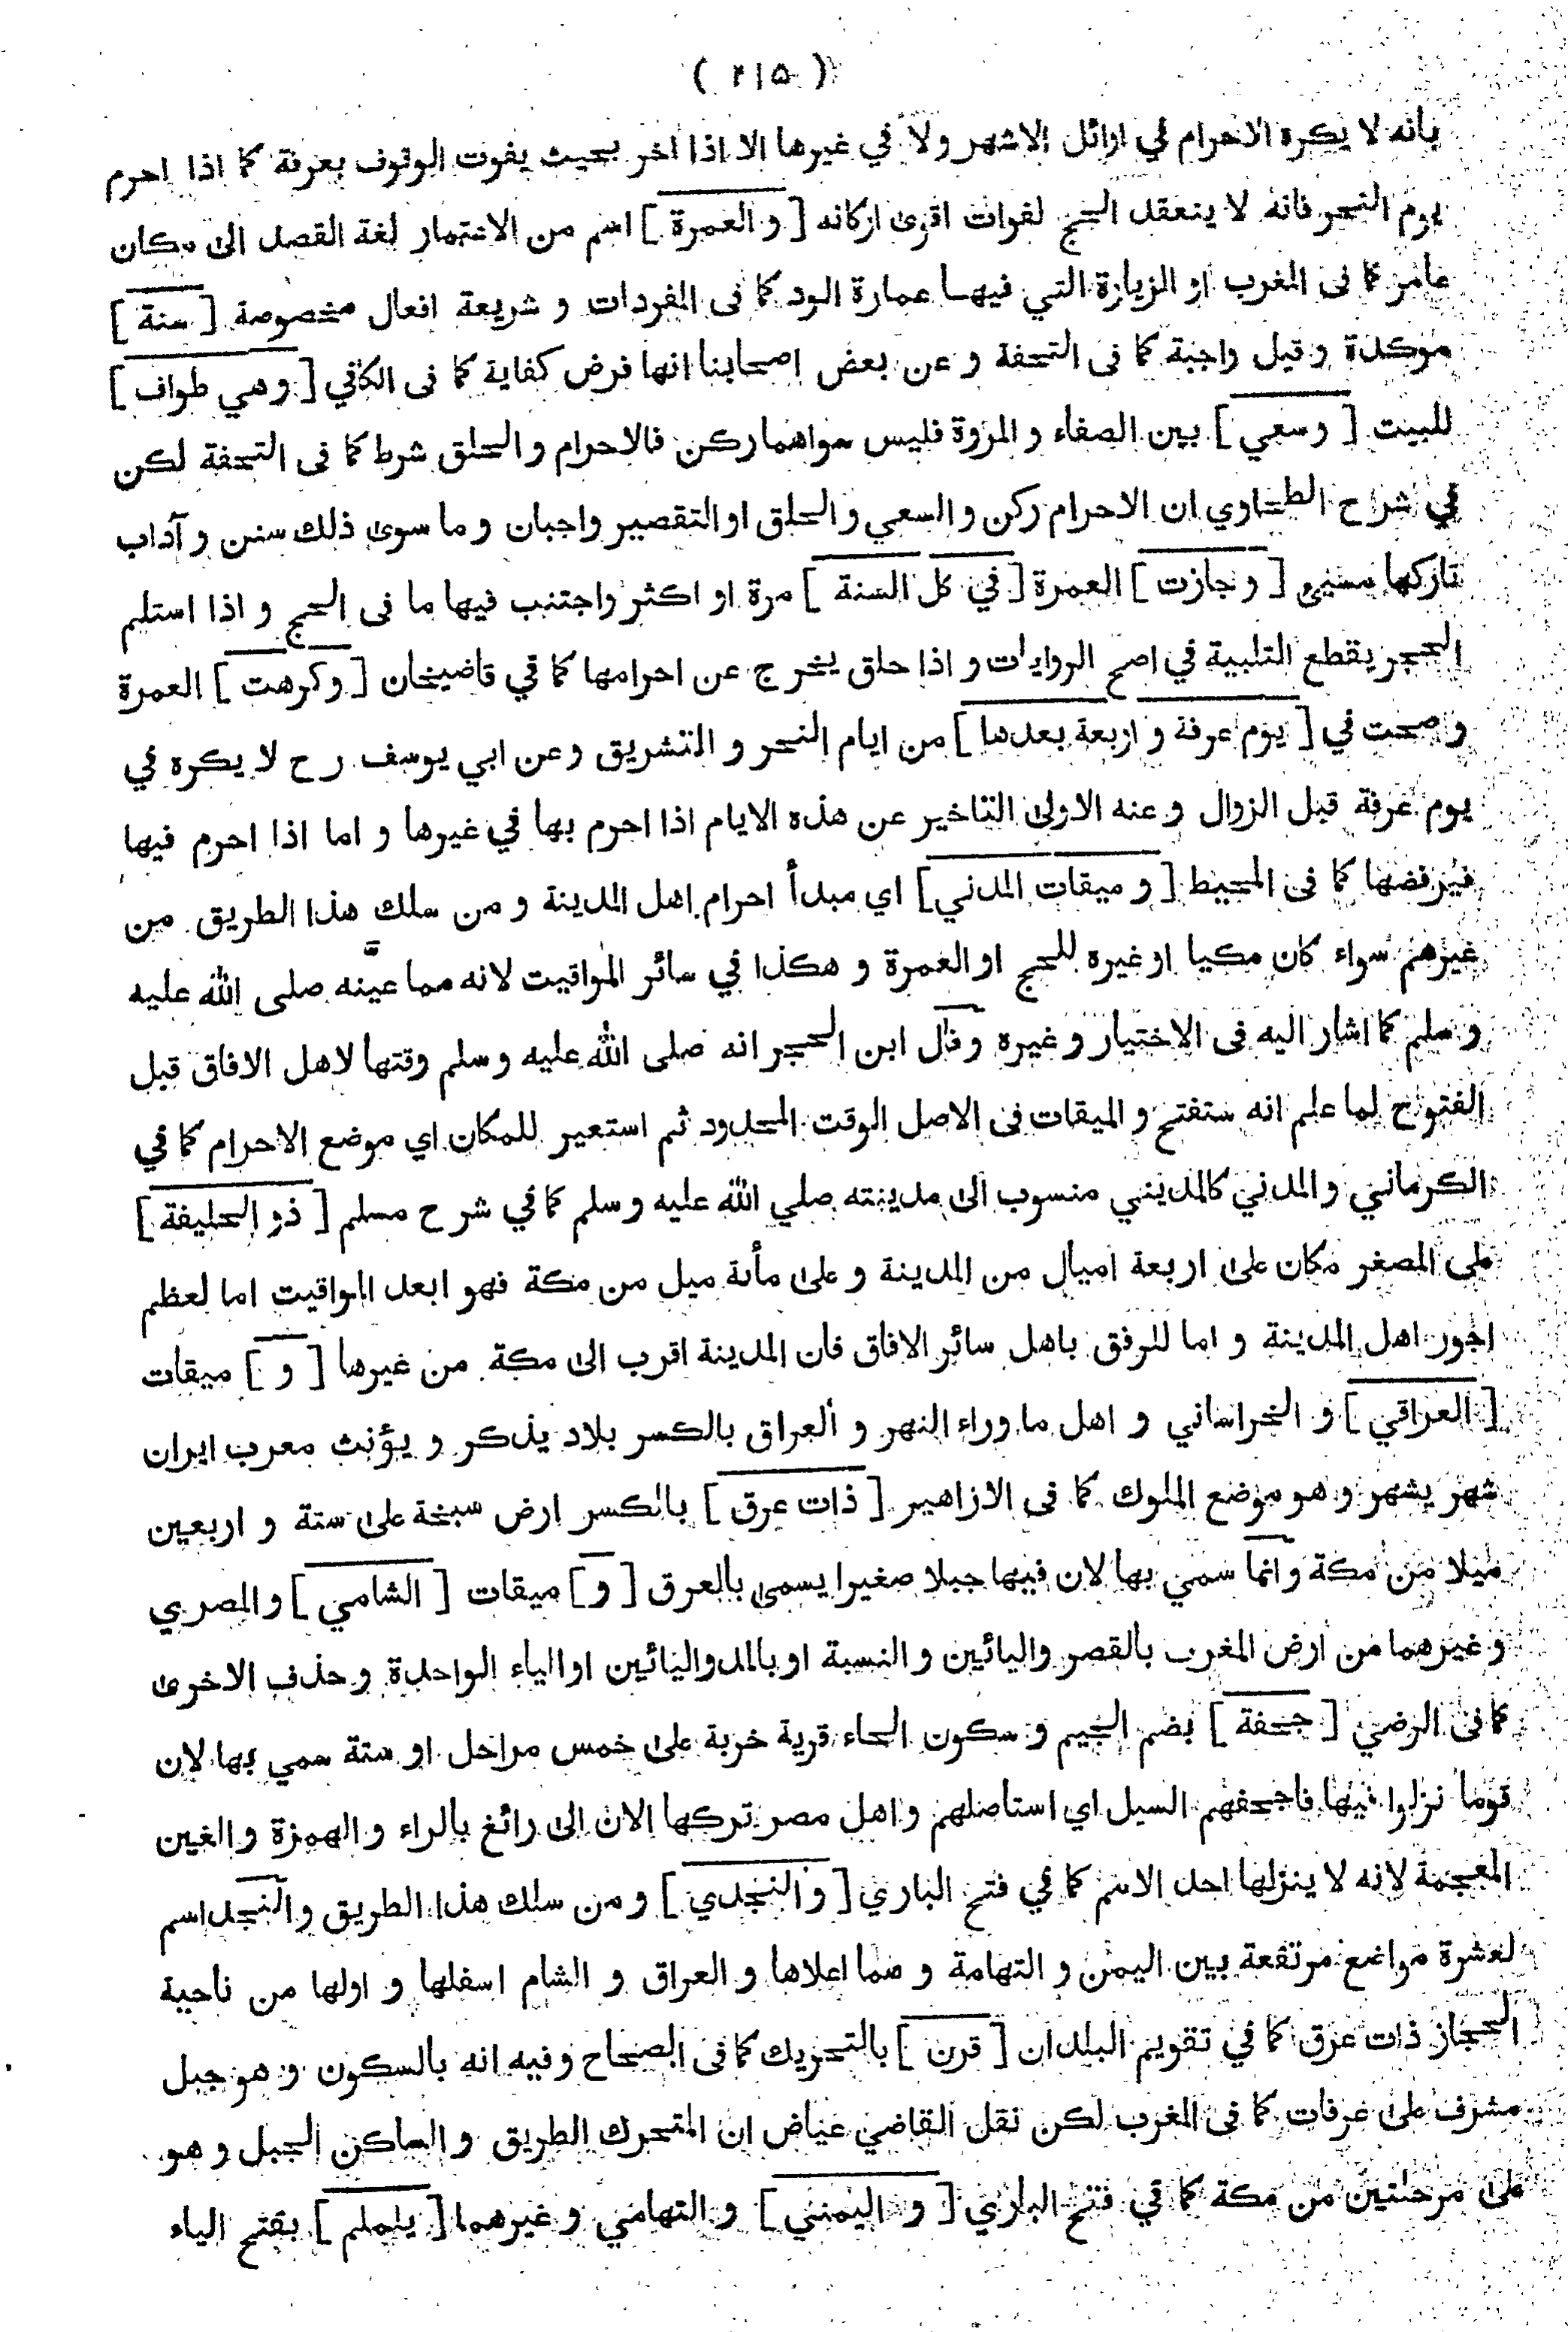 ( ٢١٥ )
بانه لا يكره الاحرام في اوائل الاشهر ولا في غيرها الا اذا اخر بحيث يفوت الوقوف بعرفة كما اذا احرم
يوم النحر فانه لا ينعقد الحج لفوات اقوى اركانه [ و العمرة ] اسم من الاعتمار لغة القصد الى مكان
عامر كما فى المغرب او الزيارة التي فيها عمارة الود كما فى المفردات و شريعة افعال مخصوصة [ سنة ]
موكدة و قيل واجبة كما فى التحفة و عن بعض اصحابنا انها فرض كفاية كما فى الكافي [ و هي طواف ]
للبيت [ و سعي ] بين الصفاء و المروة فليس سواهما ركن فالاحرام و الحلق شرط كما فى التحفة لكن
في شرح الطحاوي ان الاحرام ركن و السعي و الحلق او التقصير واجبان و ما سوى ذلك سنن و آداب
تاركها مسيى [ و جازت ] العمرة [ في كل السنة ] مرة او اكثر واجتنب فيها ما فى الحج و اذا استلم
الحجر يقطع التلبية في اصح الروايات و اذا حلق يخرج عن احرامها كما في قاضيخان [ و كرهت ] العمرة
و صحت في [ يوم عرفة و اربعة بعدها ] من ايام النحر و التشريق وعن ابي يوسف رح لا يكره في
يوم عرفة قبل الزوال و عنه الاولى التاخير عن هذه الايام اذا احرم بها في غيرها و اما اذا احرم فيها
فيرفضها كما فى المحيط [ و ميقات المدني ] اي مبدأ احرام اهل المدينة و من سلك هذا الطريق من
غيرهم سواء كان مكيا او غيره للحج او العمرة و هكذا في سائر المواقيت لانه مما عيّنه صلى الله عليه
و سلم كما اشار اليه فى الاختيار و غيره و قال ابن الحجر انه صلى الله عليه و سلم وقتها لاهل الافاق قبل
الفتوح لما علم انه ستفتح و الميقات فى الاصل الوقت المحدود ثم استعير للمكان اي موضع الاحرام كما في
الكرماني و المدني كالمديني منسوب الى مدينته صلي الله عليه و سلم كما في شرح مسلم [ ذو الحليفة ]
على المصغر مكان على اربعة اميال من المدينة و على مأىة ميل من مكة فهو ابعد المواقيت اما لعظم
اجور اهل المدينة و اما للرفق باهل سائر الافاق فان المدينة اقرب الى مكة من غيرها [ و ] ميقات
[ العراقي ] و الخراساني و اهل ما وراء النهر و العراق بالكسر بلاد يذكر و يؤنث معرب ايران
شهر يشهر و هو موضع الملوك كما فى الازاهير [ ذات عرق ] بالكسر ارض سبخة على ستة و اربعين
ميلا من مكة و انما سمي بها لان فيها جبلا صغيرا يسمى بالعرق [ و ] ميقات [ الشامي ] و المصري
و غيرهما من ارض المغرب بالقصر واليائين و النسبة او بالمد واليائين او الياء الواحدة و حذف الاخرى
كما فى الرضي [ جحفة ] بضم الجيم و سكون الحاء قرية خربة على خمس مراحل او ستة سمي بها لان
قوما نزلوا فيها فاجحفهم السيل اي استاصلهم و اهل مصر تركها الان الى رائغ بالراء و الهمزة و الغين
المعجمة لانه لا ينزلها احد الاسم كما في فتح الباري [ و النجدي ] و من سلك هذا الطريق و النجد اسم
لعشرة مواضع مرتفعة بين اليمن و التهامة و هما اعلاها و العراق و الشام اسفلها و اولها من ناحية
الحجاز ذات عرق كما في تقويم البلدان [ قرن ] بالتحريك كما فى الصحاح و فيه انه بالسكون و هو جبل
مشرف على عرفات كما فى المغرب لكن نقل القاضي عياض ان المتحرك الطريق و الساكن الجبل و هو
على مرحلتين من مكة كما في فتح الباري [ و اليمني ] و التهامي و غيرهما [ يلملم ] بفتح الياء